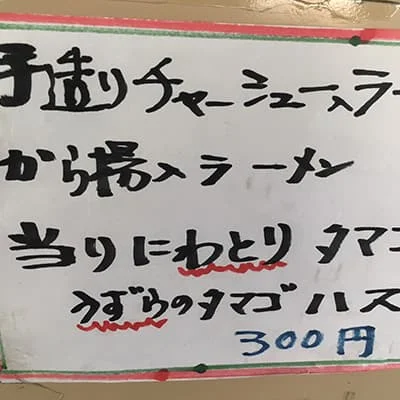 手造りチャーシュー入ラー
から揚入ラーメン
当りにわとりタマゴ
うずらのタマゴハズ
300円